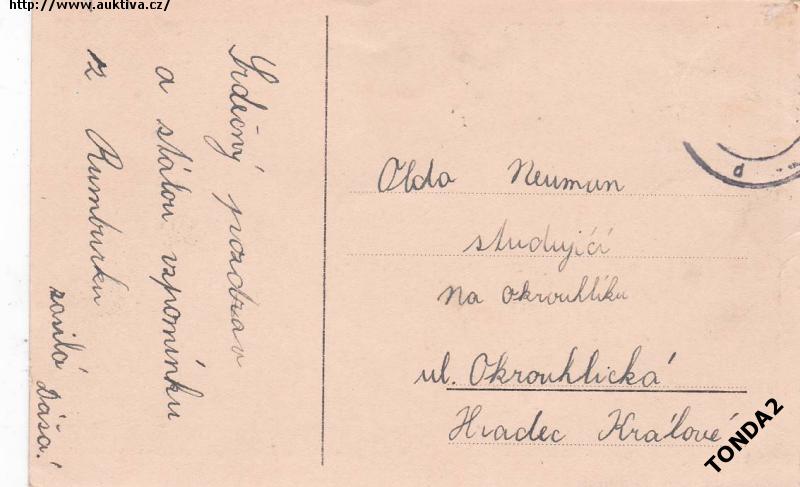 http://www.auktiva.cz/
Srdečný pozdrav
a stálou vzpomínku
z Rumburku
zasílá Dáša!
Olda Neuman
studující
na Okrouhlíku
ul. Okrouhlická
Hradec Králové
TONDA2